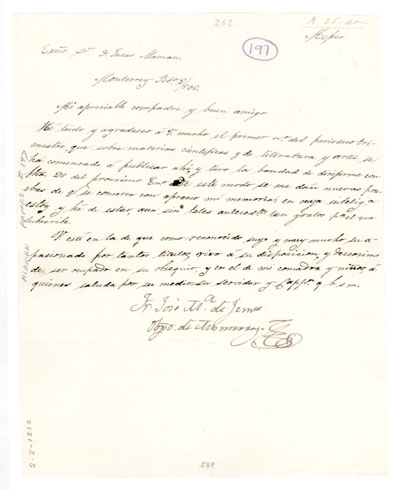 252
197
R. 25. en
Mejico
Exmo. Sr. D. Lucas Alaman.
Monterrey
Mi apreciable compadre y buen amigo.
He leido y agradesco á V. mucho el primer no. del periodico tri-
mestre, que sobre materias cientificas y de literatura y artes se
há comensado á publicar ahi, y tuvo la bondad de dirijirme con
fha. 20 del proximo En. De este modo se me dán nuevas prue-
bas de q. se conserva con aprecio mi memoria; en cuya intelig.
estoy y hé de estar, aun sin tales antecedtes. tan gratos pa. el que
subscribe.
V. está en la de que como reconocido suyo y muy mucho su a-
pasionado por tantos titulos, vivo á su disposicion, y deseosisimo
de ser ocupado en su obsequio, y en el de mi comadre y niños, á
quienes saluda por su medio su servidor y Cappn. q. b. s. m.
Fr. José Ma. de Jesus
Obpo. de Monterrey
ALAMAN PAPERS # 197
2-2-1832